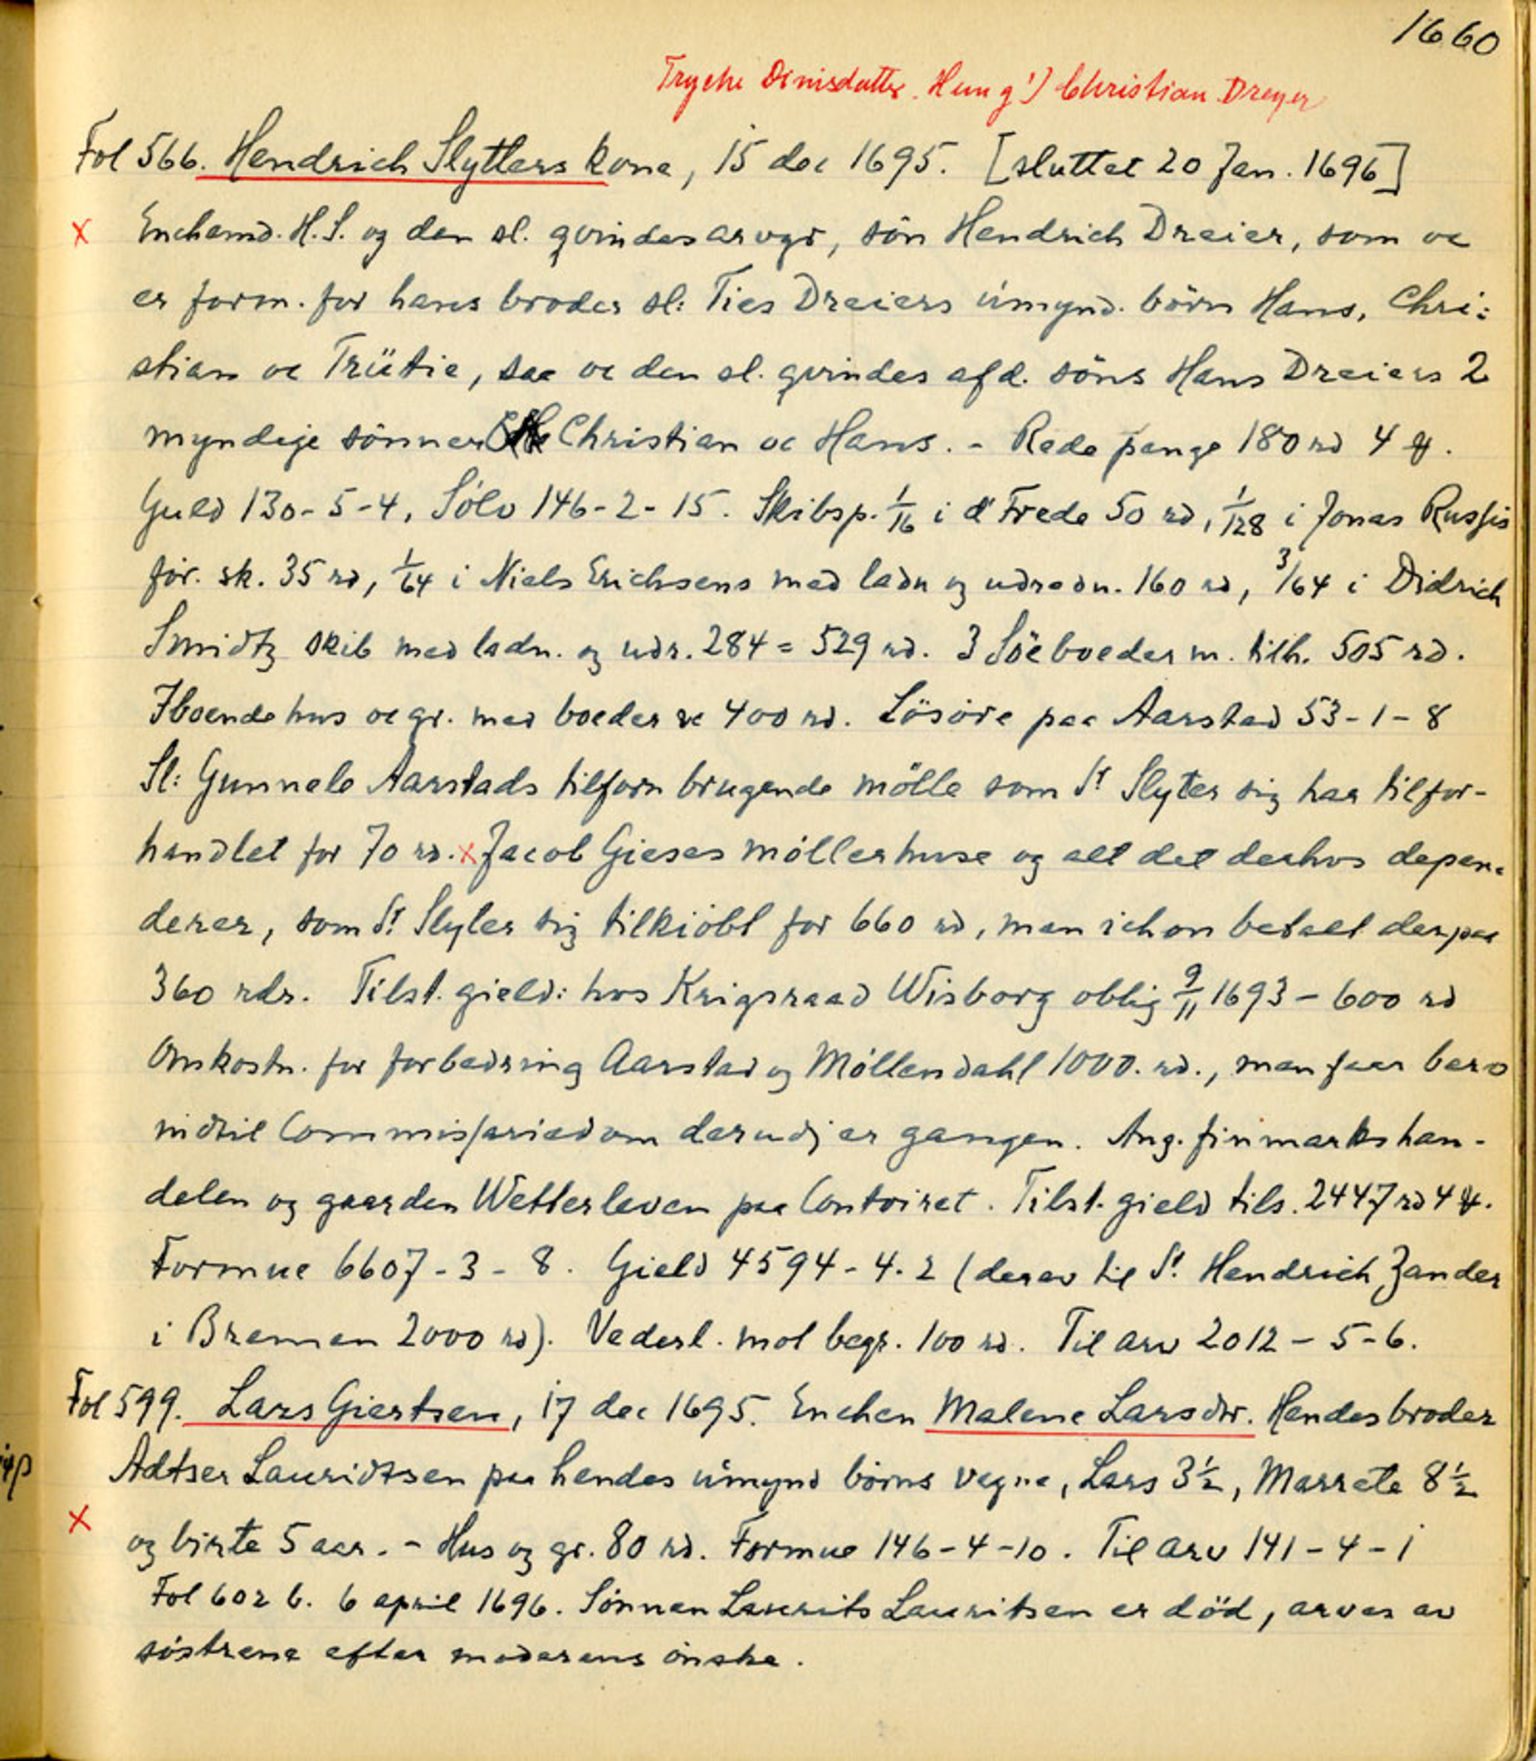 1660
Tryche Dinisdatter. Hun g¹) Christian Dreyer
Fol 566. Hendrich Slytters kone, 15 dec 1695. [sluttet 20 Jan. 1696]
x Enchemd. H.S. og den sl. qvindes arvgr, sön Hendrich Dreier, som oc
er form. for hans broder sl: Ties Dreiers úmynd. börn Hans, Chri:
stian oc Trütie, saa oc den sl. qvindes afd. söns Hans Dreiers 2
myndige sönner Christian oc Hans. - Rede penge 180 rd 4 ₰.
Guld 130-5-4, Sölv 146-2-15. Skibsp. 1/16 i d' Frede 50 rd, 1/128 i Jonas Russis
för. sk. 35 rd, 1/64 i Niels Erichsens med ladn og udredn. 160 rd, 3/64 i Didrich
Smidtz skib med ladn. og udr. 284 = 529 rd. 3 Söeboeder m. tilh. 505 rd.
Iboende hus oc gr. med boeder 400 rd. Lösöre paa Aarstad 53-1-8
Sl: Gunnele Aarstads tilforn brugende mölle som Sr Slyter sig har tilfor-
handlet for 70 rd. x Jacob Gieses möllerhuse og alt det derhos depen-
derer, som Sr Slyter sig tilkiöbt for 660 rd, men ichon betalt derpaa
360 rdr. Tilst. gield: hos Krigsraad Wisborg oblig 9/11 1693 - 600 rd
Omkostn. for forbedring Aarstad og Möllendahl 1000. rd., men faar bero
indtil Commissariedom derudj er gangen. Ang. finmarkshan-
delen og gaarden Wetterleven paa Contoiret. Tilst. gield tils. 2447 rd 4 ₰.
Formue 6607-3-8. Gield 4594-4-2 (derav til Sr Hendrich Zander
i Bremen 2000 rd). Vederl. mot begr. 100 rd. Til arv 2012-5-6.
Fol 599. Lars Giertsen, 17 dec 1695. Enchen Malene Larsdtr. Hendes broder
Adtser Lauridtsen paa hendes úmynd börns vegne, Lars 3½, Marrete 8½
x og birte 5 aar. - Hus og gr. 80 rd. Formue 146-4-10. Til arv 141-4-1
Fol 602 b. 6 april 1696. Sönnen Laurits Lauritsen er död, arves av
söstrene efter moderens önske.